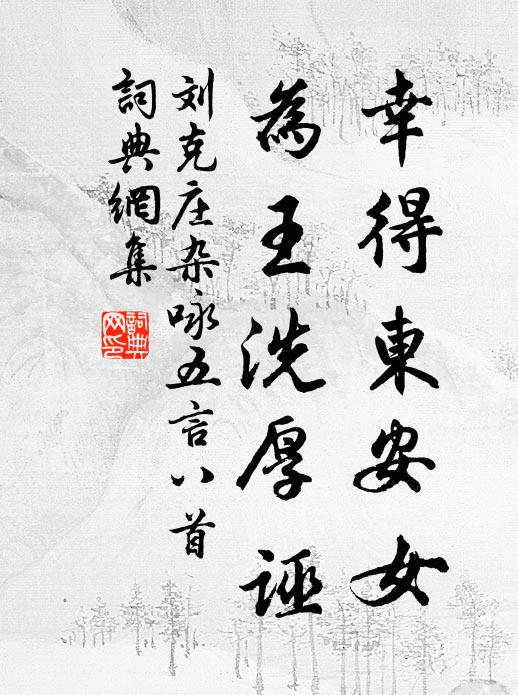 幸得東安女
為王洗厚誣
刘克庄杂咏五言八首
詞典網集
詞典網印